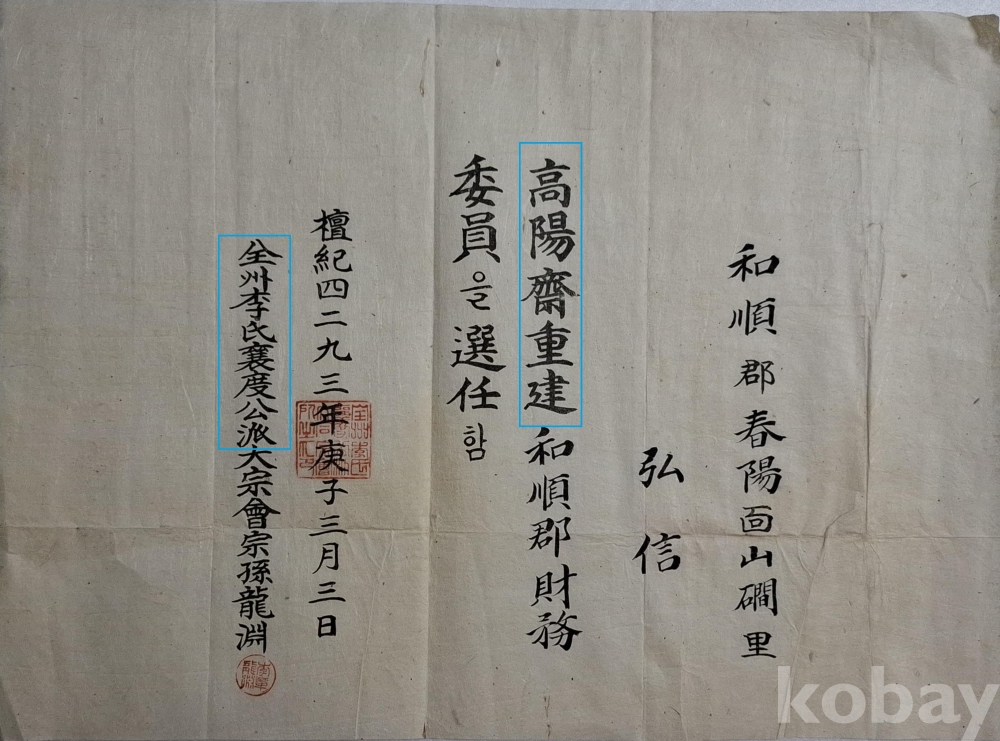 和順郡春陽面山磵里
弘信
高陽齋重建和順郡財務
委員을選任함
檀紀四二九三年庚子三月三日
全州李氏襄度公派大宗會宗孫龍淵
kobay